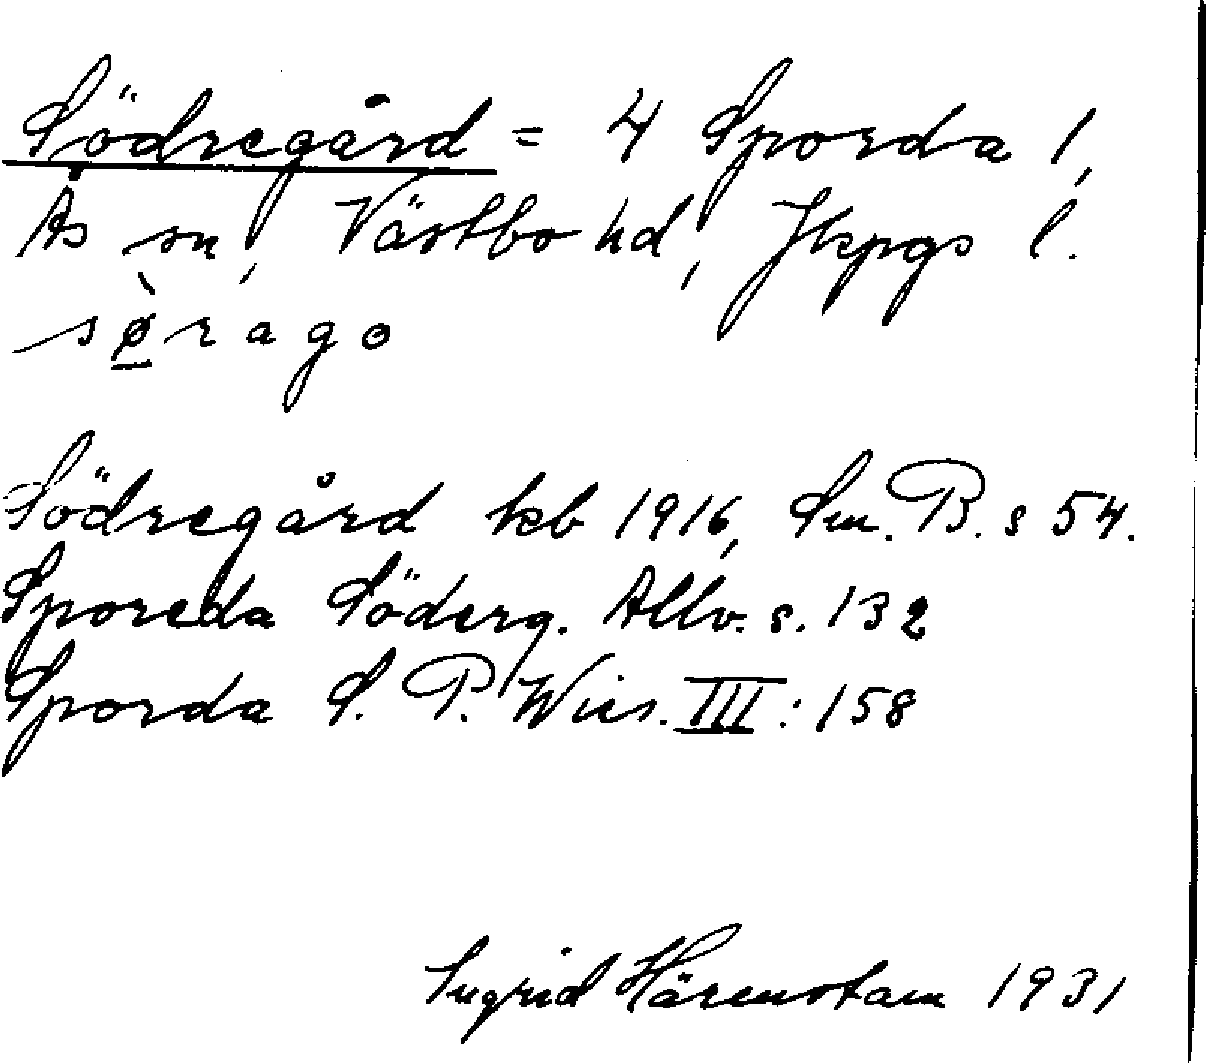 Södregård = 4 Sporda 1,
Ås sn, Västbo hd, Jkpgs l.
sø̀rago
Södregård kb 1916, Sm. B. s 54.
Sporeda Söderg. Allv. s. 132
Sporda S. P. Wies. III: 158
Ingrid Härenstam 1931